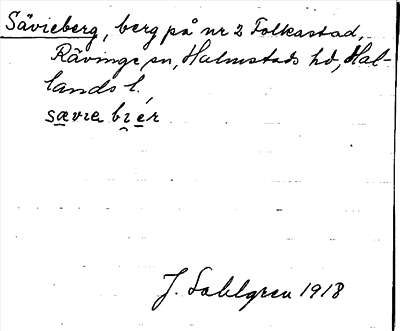 Sävieberg, berg på nr 2 Folkastad,
Rävinge sn, Halmstads hd, Hal-
lands l.
sævia bi̯ér
J. Sahlgren 1918